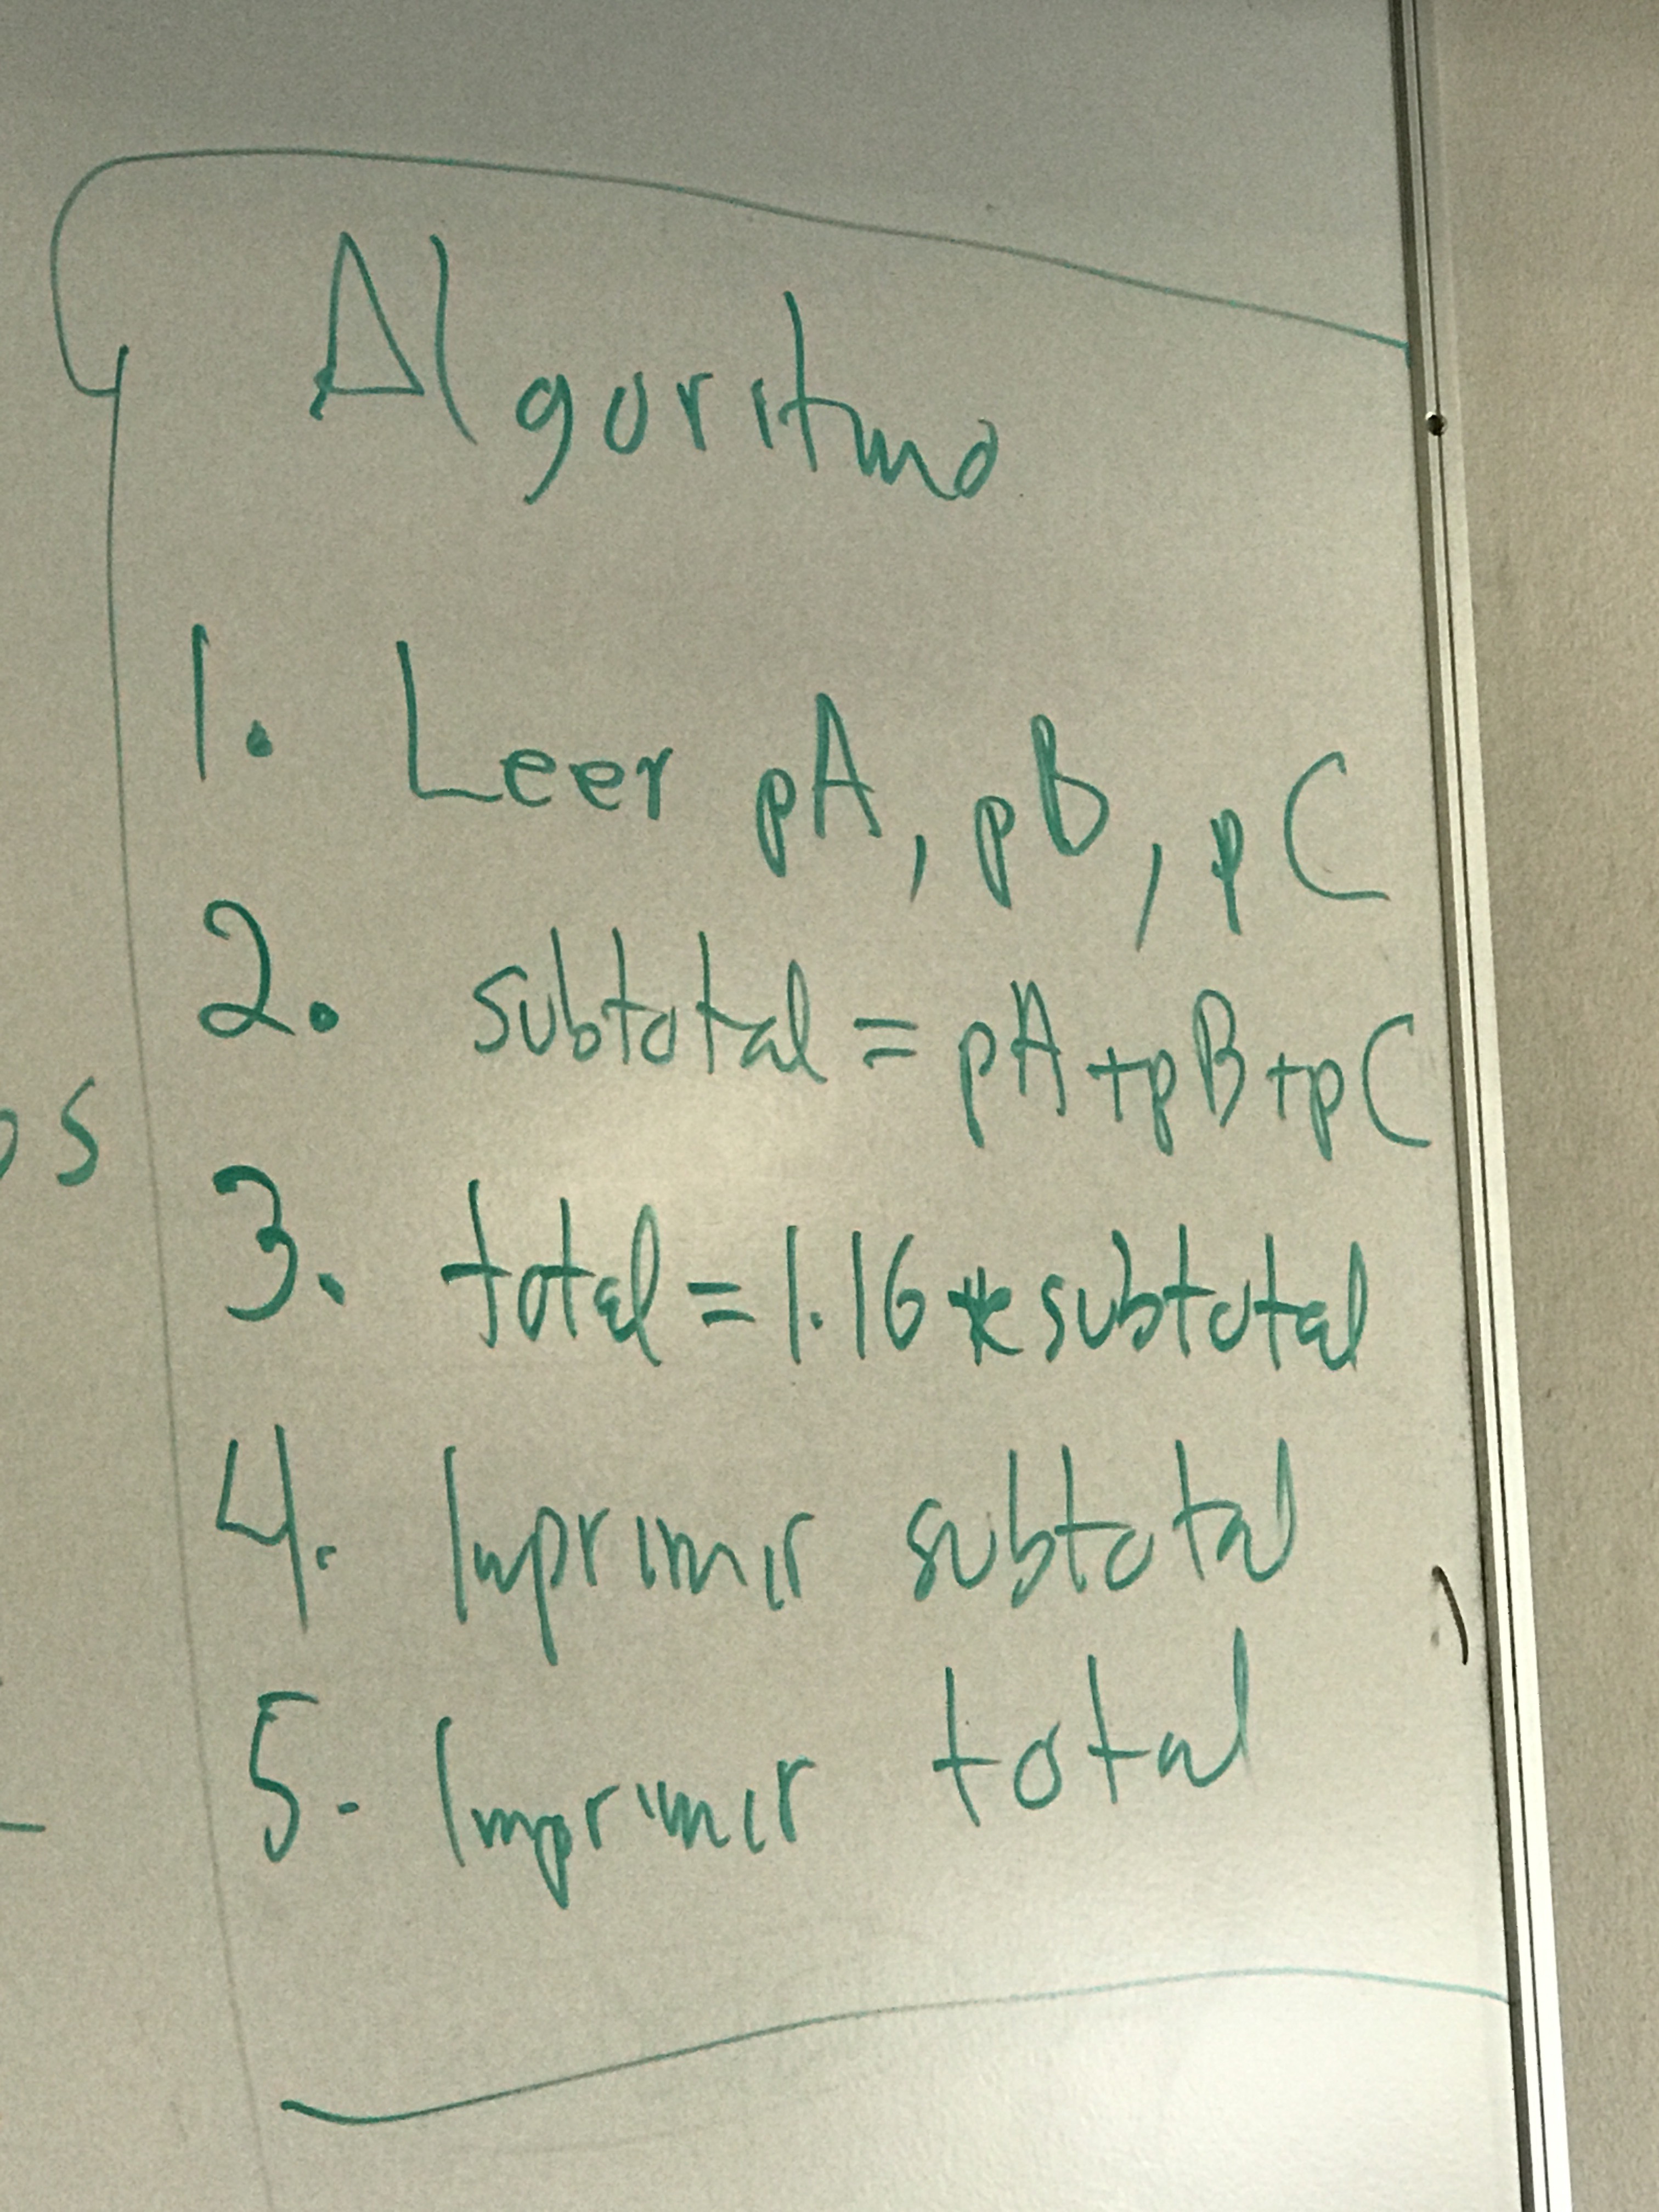 Algoritmo
1. Leer pA, pB, pC
2. subtotal = pA+pB+pC
os
3. total = 1.16 * subtotal
4. Imprimir subtotal
5. Imprimir total